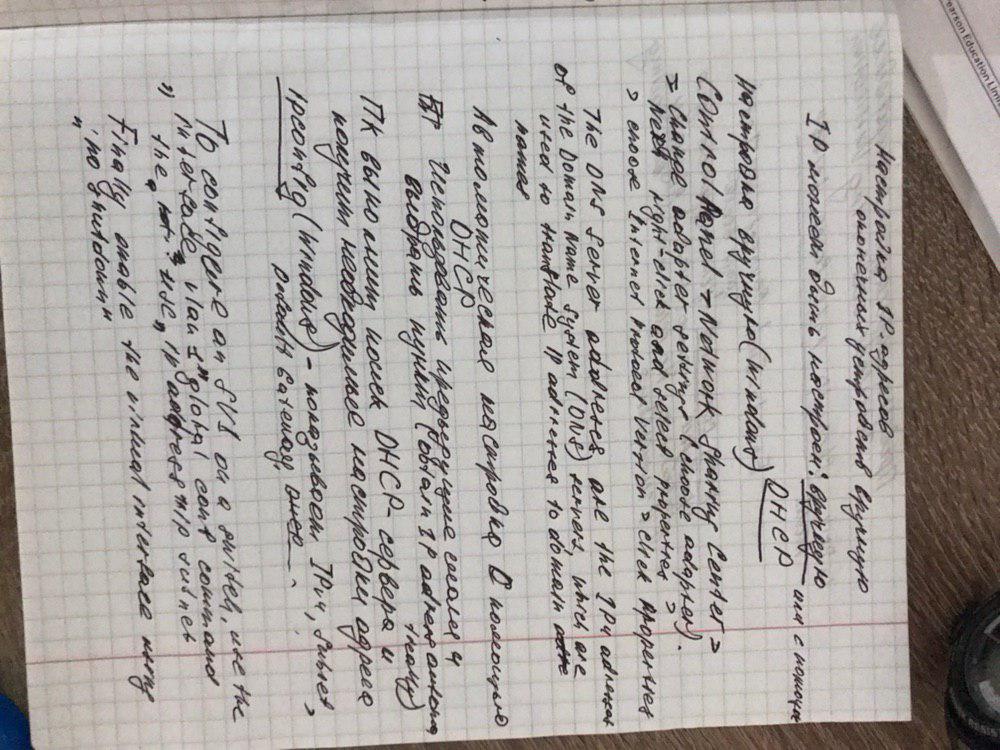 Настройка IP-адресов
оконечных устройств вручную
IP может быть настроен: вручную или с помощью
DHCP
Настройка вручную (Windows)
Control Panel > Network Sharing Center >
> Change adapter settings (choose adapter).
> right-click and select properties >
> choose Internet Protocol Version > click properties
The DNS Server addresses are the IPv4 addresses
of the Domain Name System (DNS) servers, which are
used to translate IP addresses to domain
names
Автоматическая настройка с помощью
DHCP
Использовать предыдущие 4
выбрать пункт (obtain IP address automa
tically)
ПК выполнит поиск DHCP-сервера и
получит необходимые настройки адреса
ipconfig (Windows) - показывает IPv4, Subnet,
Gateway,
To configure an SVI on a switch, use the
"interface vlan 1" global conf command
the, use "ip address m/o subnet
Finally enable the virtual interface using
"no shutdown"
earson Education Lim